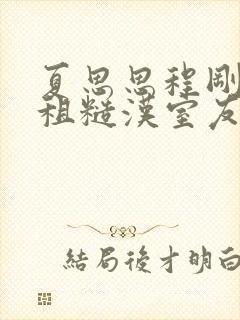 夏思思程剛
租糙漢室友
結局後才明白